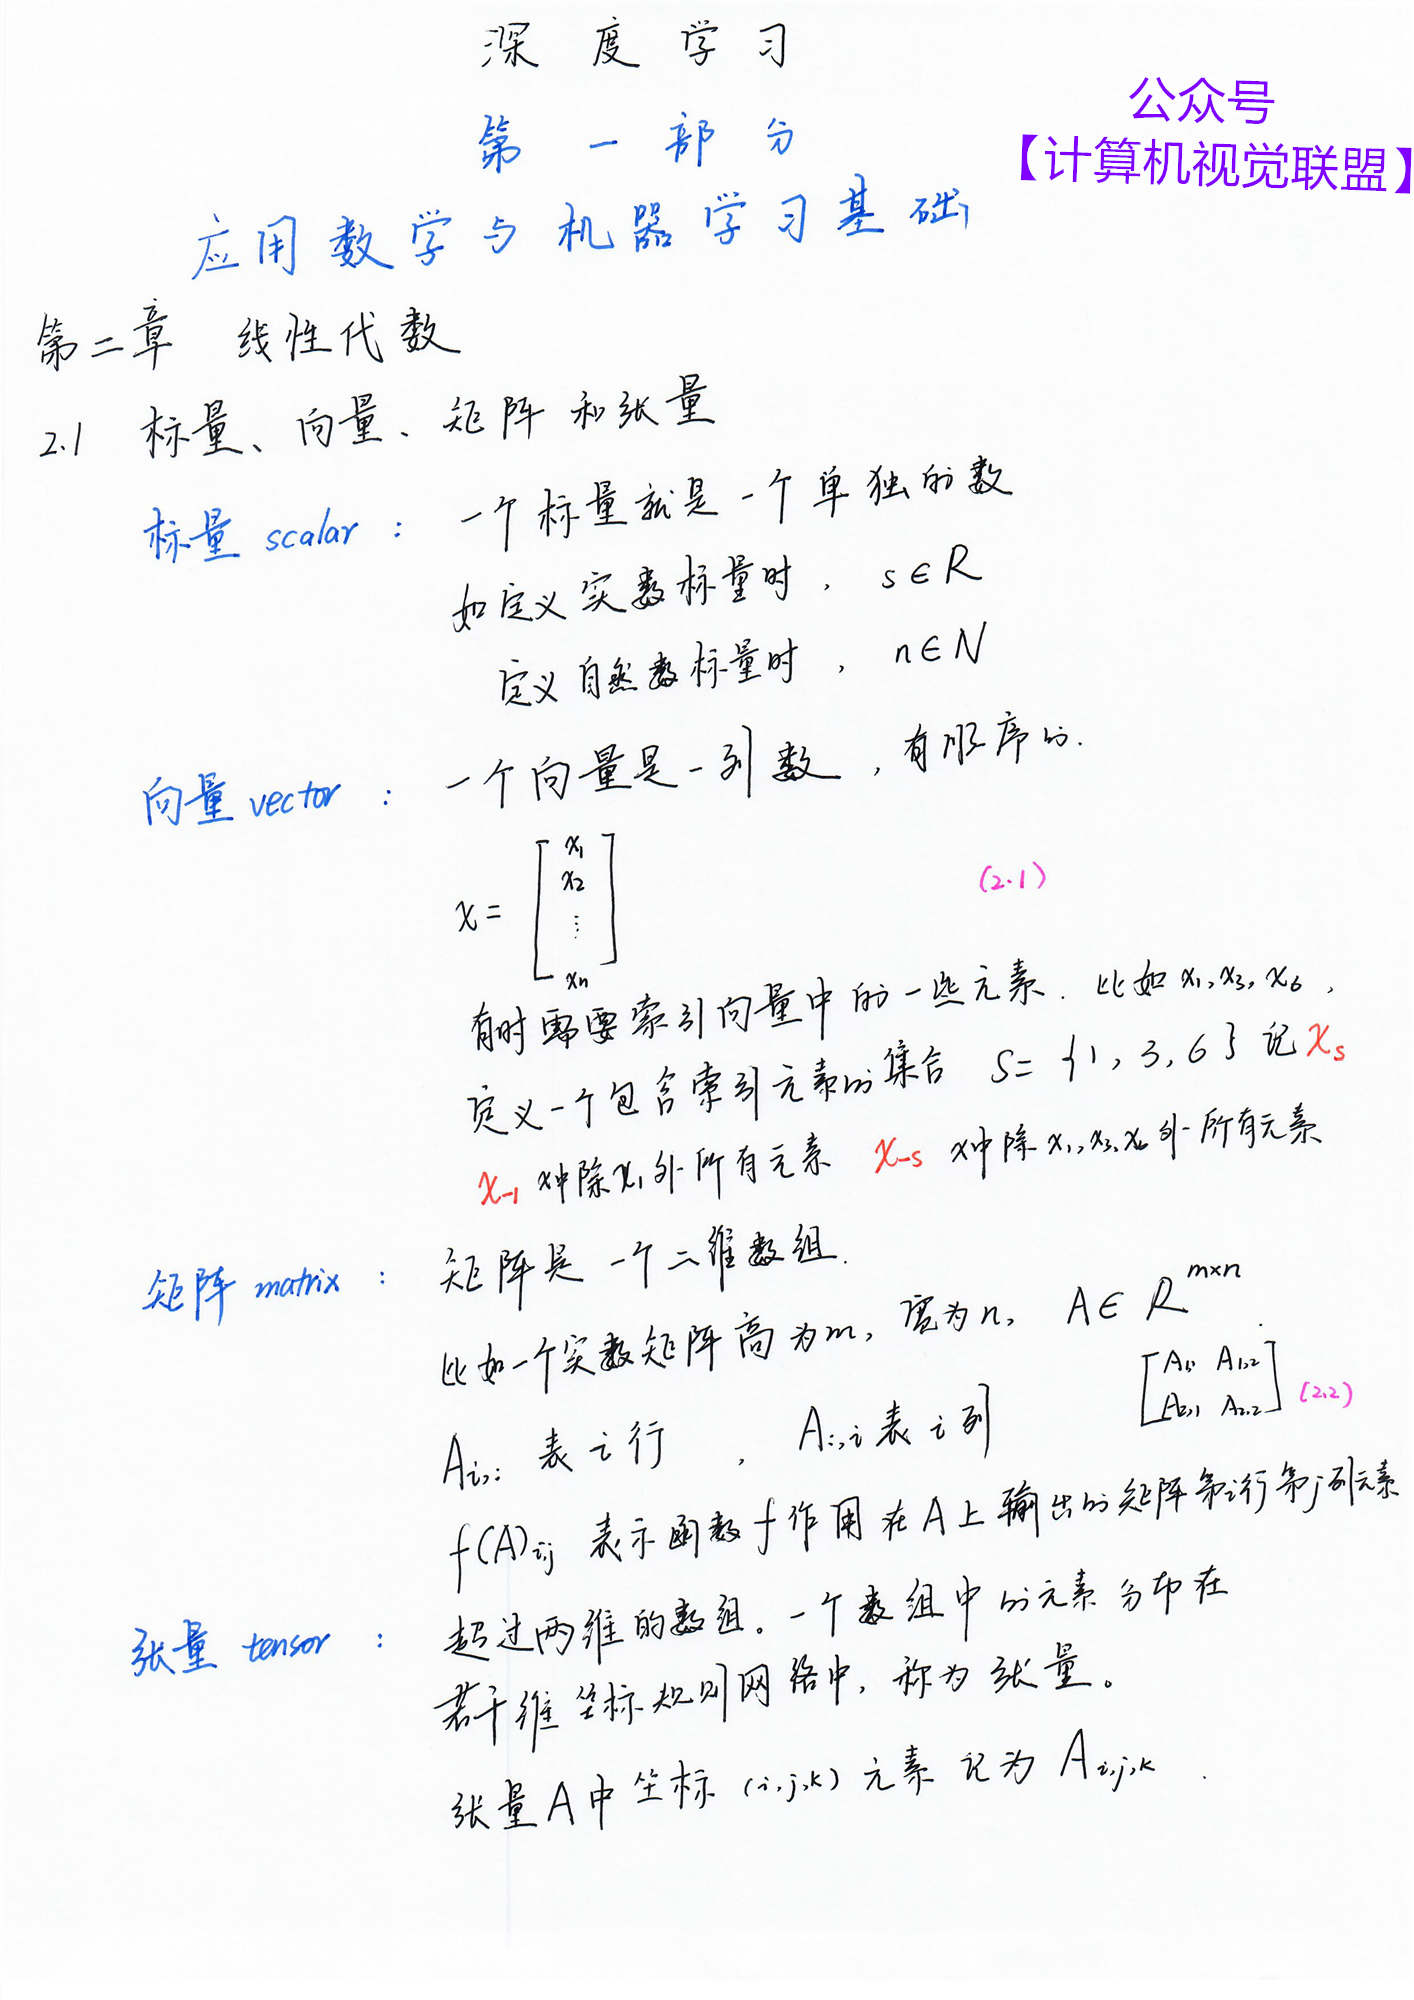 深度学习
公众号
【计算机视觉联盟】
第一部分
应用数学与机器学习基础
第二章 线性代数
2.1 标量、向量、矩阵和张量
标量 scalar : 一个标量就是一个单独的数
如定义实数标量时, s∈R
定义自然数标量时, n∈N
向量 vector : 一个向量是一列数,有顺序的.
x = [ x₁
x₂
⋮
xn ] (2.1)
有时需要索引向量中的一些元素. 比如 x₁, x₃, x₆,
定义一个包含索引元素的集合 S= {1, 3, 6} 记 xs
x-1 x中除x₁外所有元素 x-s x中除 x₁,x₃,x₆外所有元素
矩阵 matrix : 矩阵是一个二维数组.
比如一个实数矩阵高为m, 宽为n, A∈R^m×n.
[ A1,1 A1,2
A2,1 A2,2 ] (2.2)
Ai,: 表i行 , A:,i 表i列
f(A)i,j 表示函数f作用在A上输出的矩阵第i行第j列元素
张量 tensor : 超过两维的数组。一个数组中的元素分布在
若干维坐标规则网络中, 称为张量。
张量A中坐标(i,j,k)元素记为 Ai,j,k .